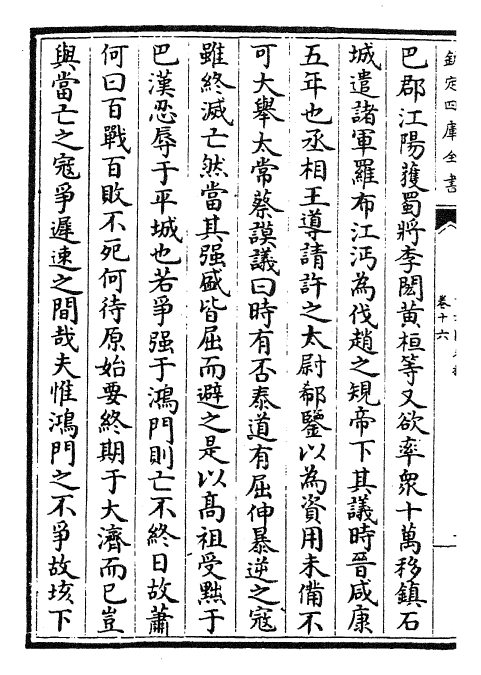 欽定四庫全書
卷十六
巴郡江陽獲蜀將李閎黄桓等又欲率衆十萬移鎮石
城遣諸軍羅布江沔為伐趙之規帝下其議時晉咸康
五年也丞相王導請許之太尉郗鑒以為資用未備不
可大舉太常蔡謨議曰時有否泰道有屈伸暴逆之寇
雖終滅亡然當其强盛皆屈而避之是以髙祖受黜于
巴漢忍辱于平城也若爭强于鴻門則亡不終日故蕭
何曰百戰百敗不死何待原始要終期于大濟而已豈
與當亡之寇爭遲速之間哉夫惟鴻門之不爭故垓下